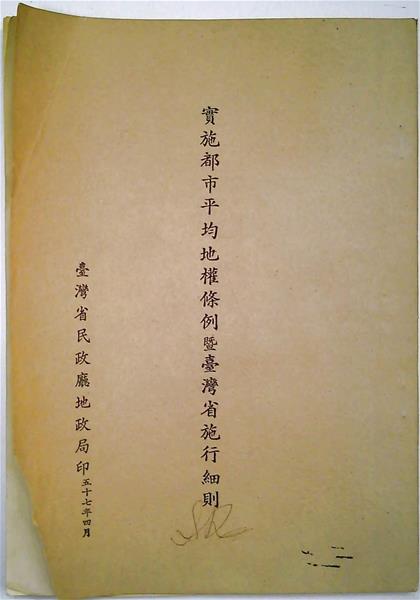 實施都市平均地權條例暨臺灣省施行細則
臺灣省民政廳地政局印五十七年四月